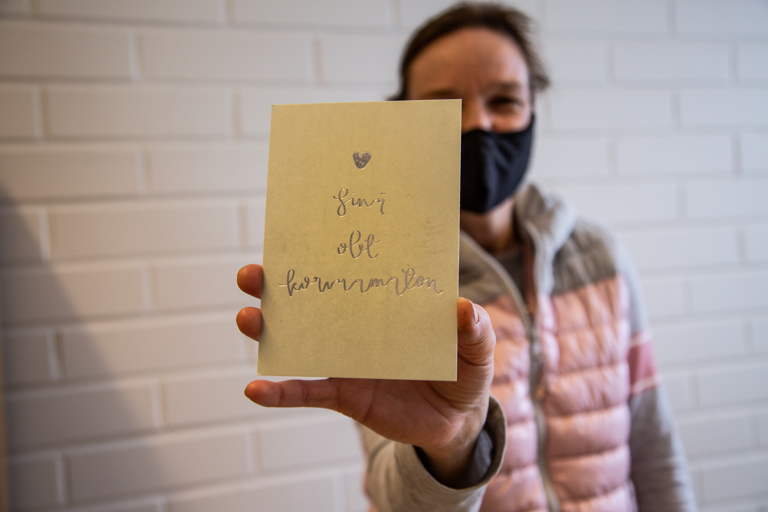 Sinä
olet
korvaamaton